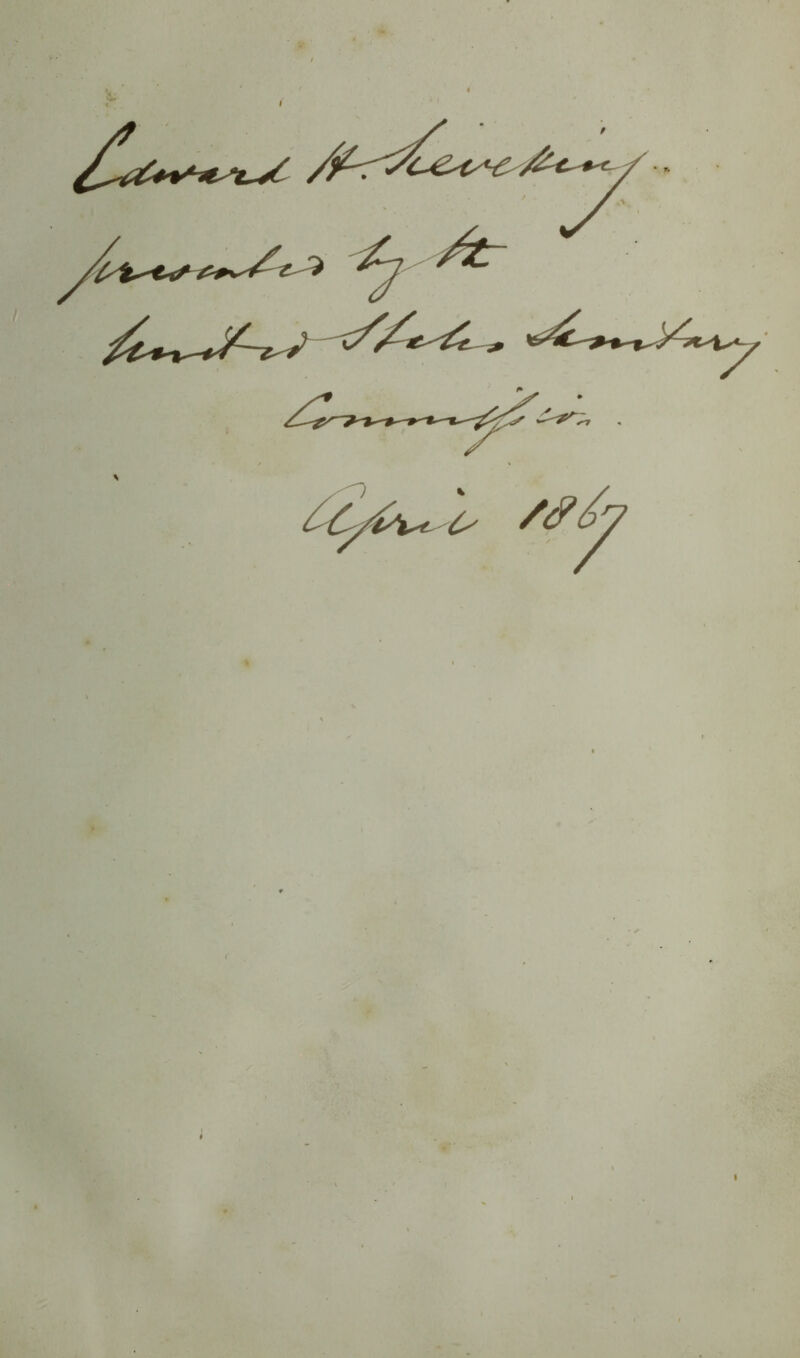 Edward H. Sieveking.
presented by the
United States Sanitary
Commission.
April 1867